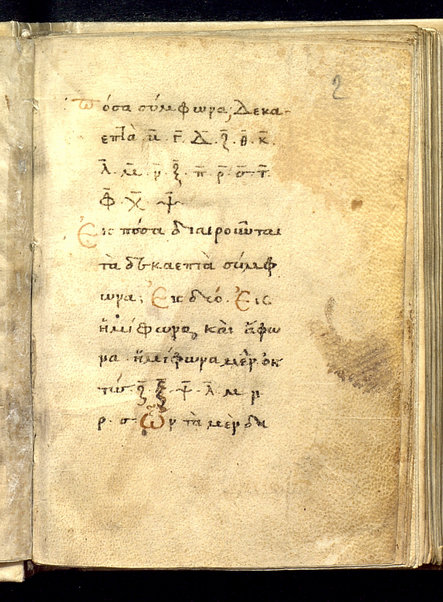 2
Πόσα σύμφωνα, Δεκα-
επτὰ β̄. γ̄. Δ̄. ζ̄. θ̄. κ̄.
λ̄. μ̄. ν̄. ξ̄. π̄. ρ̄. σ̄. τ̄.
φ̄. χ̄. ψ̄.
Εἰς πόσα διαιροῦνται
τὰ δεκαεπτὰ σύμφ
ωνα; Εἰς δύο. Εἰς
ἡμίφωνα, καὶ ἄφω
να. ἡμίφωνα μὲν ὀκ
τώ. ζ̄. ξ̄. ψ̄. λ̄. μ. ν.
ρ. σ. Ὧν τὰ μὲν δι